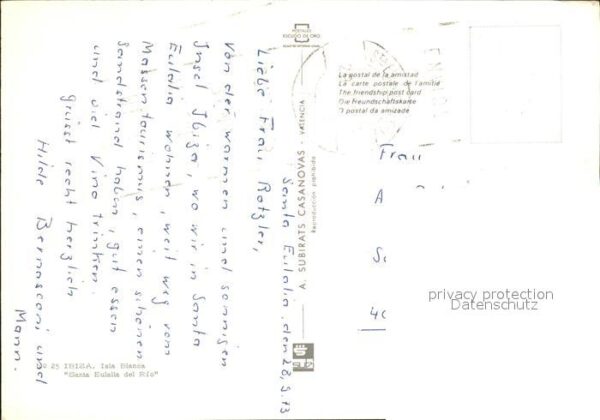 Santa Eulalia, den 28.5.73
Liebe Frau Rotzler,
Von der warmen und sonnigen
Insel Ibiza, wo wir in Santa
Eulalia wohnen, weit weg vom
Massentourismus, einen schönen
Sandstrand haben, gut essen
und viel Vino trinken.
grüsst recht herzlich
Hilde Bernasconi und
Mann.
POSTALES
ESCUDO DE ORO
La postal de la amistad
La carte postale de l'amitié
The friendship post card
Die Freundschaftskarte
O postal da amizade
A. SUBIRATS CASANOVAS - VALENCIA
Reproducción prohibida
Frau
A
S
privacy protection
Datenschutz
25 IBIZA. Isla Blanca
"Santa Eulalia del Río"